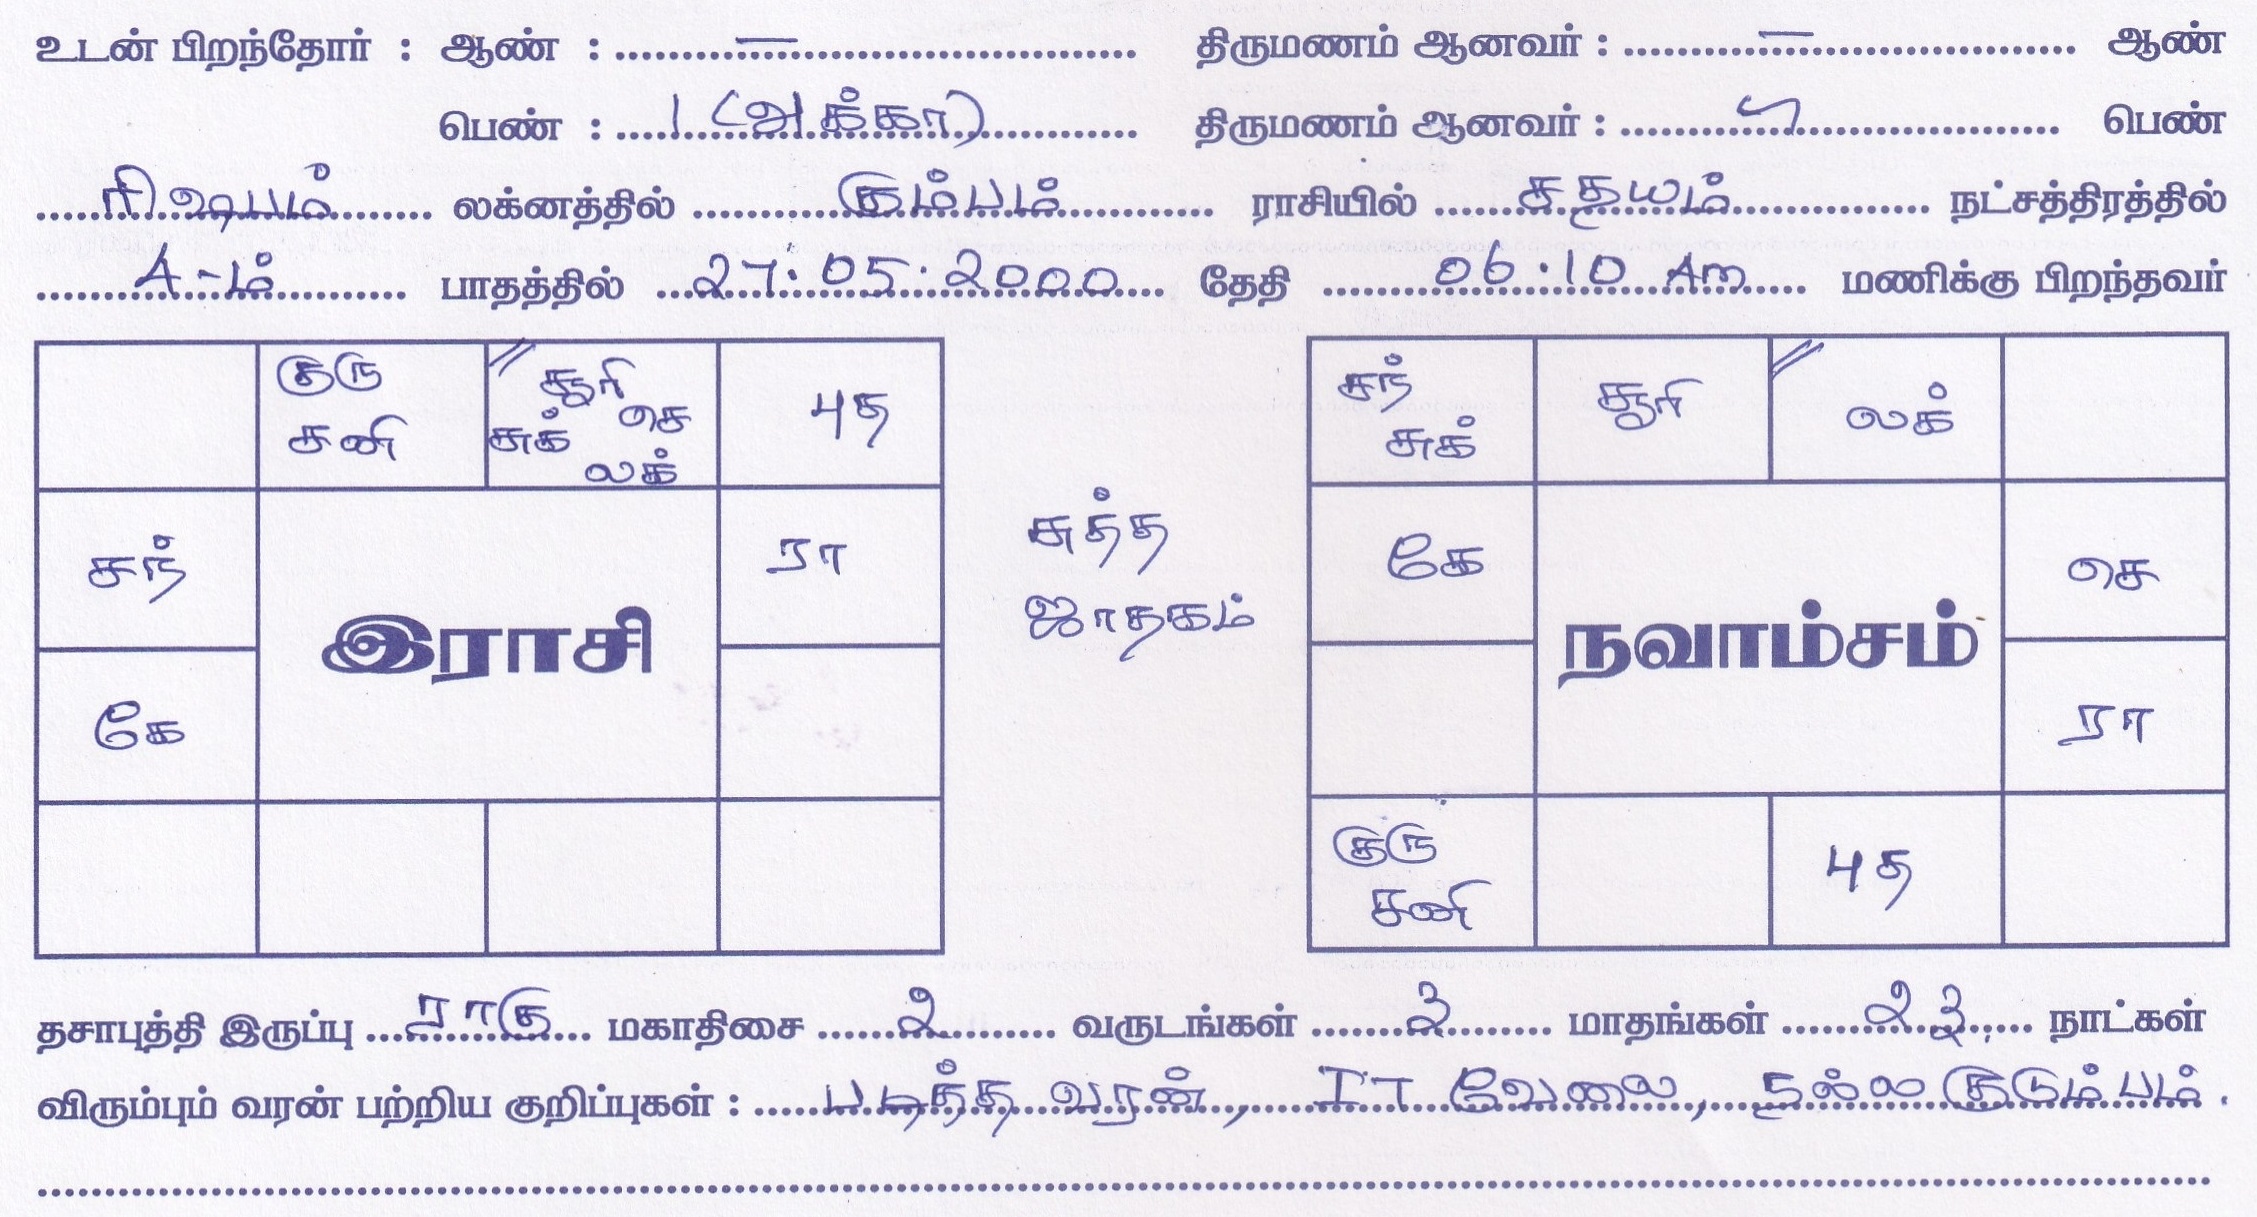 உடன் பிறந்தோர் : ஆண் : ..........—.......... திருமணம் ஆனவர் : ..........—.......... ஆண்
பெண் : ..... 1 (அக்கா) ..... திருமணம் ஆனவர் : .................... பெண்
..... ரிஷபம் ..... லக்னத்தில் ..... கும்பம் ..... ராசியில் ..... சதயம் ..... நட்சத்திரத்தில்
..... 4-ம் ..... பாதத்தில் ..... 27:05:2000 ..... தேதி ..... 06:10 Am ..... மணிக்கு பிறந்தவர்
குரு சூரி புத சந் சூரி லக்
சனி சுக் செ லக் சுக்
சந் ரா சுத்த கே செ
இராசி ஜாதகம் நவாம்சம்
கே ரா
குரு புத
சனி
தசாபுத்தி இருப்பு ... ராகு ... மகாதிசை ..... 2 ..... வருடங்கள் ..... 3 ..... மாதங்கள் ..... 23 ..... நாட்கள்
விரும்பும் வரன் பற்றிய குறிப்புகள் : ..... படித்த வரன், IT வேலை, நல்ல குடும்பம்.